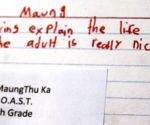 Maung
ring explain the life
he adult is really nic
MaungThu Ka
O.A.S.T.
h Grade